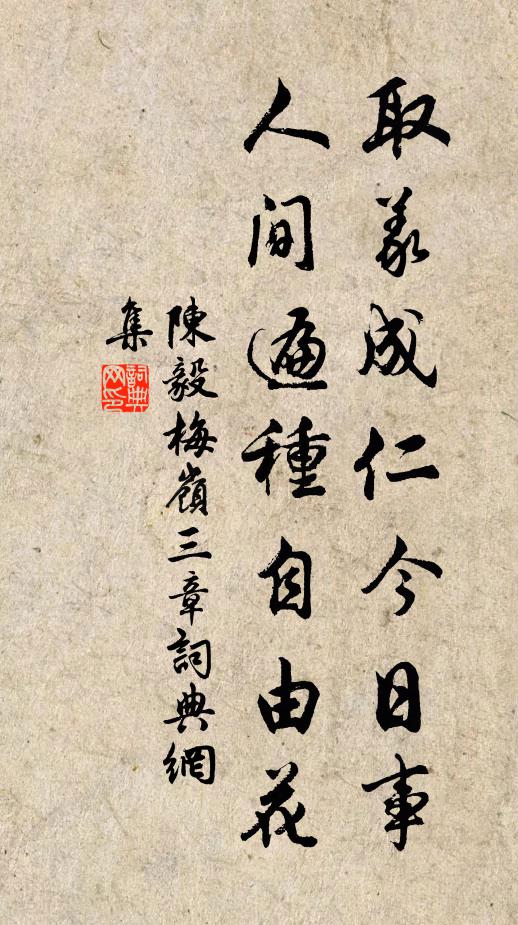 取義成仁今日事
人间遍種自由花
陳毅梅嶺三章詞典網
集
詞典網印